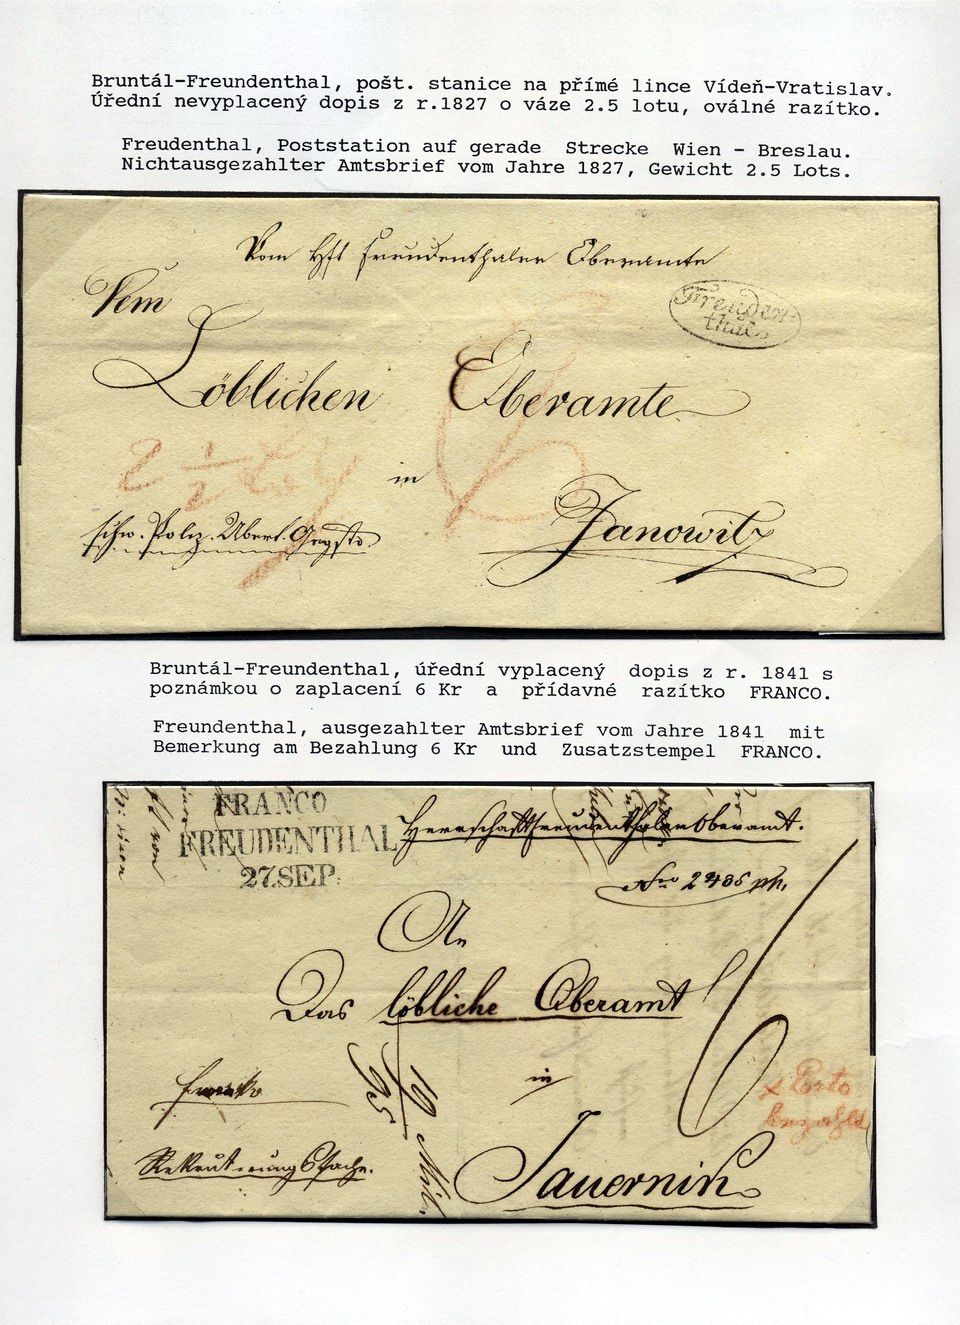 Bruntál-Freundenthal, pošt. stanice na přímé lince Vídeň-Vratislav.
Úřední nevyplacený dopis z r.1827 o váze 2.5 lotu, oválné razítko.
Freudenthal, Poststation auf gerade Strecke Wien - Breslau.
Nichtausgezahlter Amtsbrief vom Jahre 1827, Gewicht 2.5 Lots.
Vom Hft Freudenthaler Oberamte
Dem
Freuden-
thal.
Löblichen Oberamte
2 1/2
6
in
Janowitz
Bruntál-Freundenthal, úřední vyplacený dopis z r. 1841 s
poznámkou o zaplacení 6 Kr a přídavné razítko FRANCO.
Freundenthal, ausgezahlter Amtsbrief vom Jahre 1841 mit
Bemerkung am Bezahlung 6 Kr und Zusatzstempel FRANCO.
FRANCO
FREUDENTHAL
27.SEP.
Herrschaft freudenthaler Oberamt.
Nro 2485
An
Das löbliche Oberamt
6
in
franko
x Porto
bezahlt
Rekrutirungssache.
Jauernik